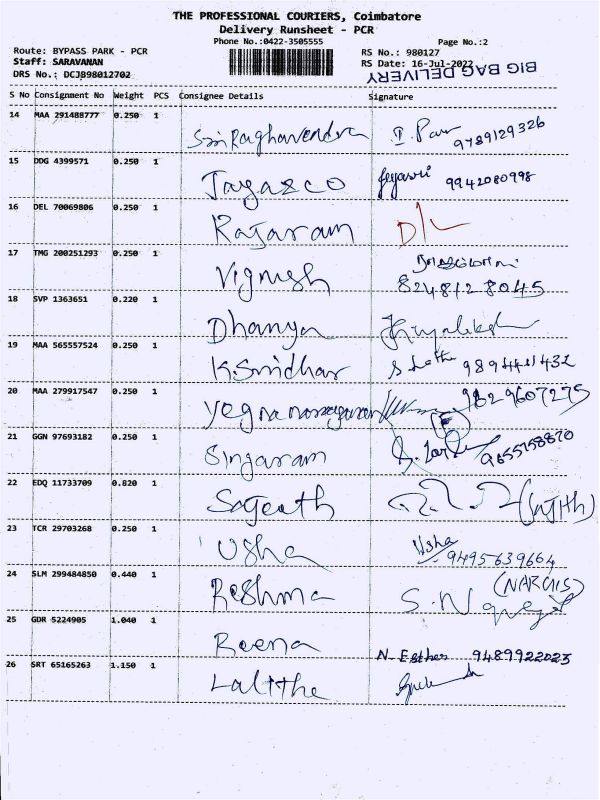 THE PROFESSIONAL COURIERS, Coimbatore
Delivery Runsheet - PCR
Phone No.:0422-3505555 Page No.:2
Route: BYPASS PARK - PCR RS No.: 980127
Staff: SARAVANAN RS Date: 16-Jul-2022
BIG BAG DELIVERY
DRS No.: DCJ898012702
S No Consignment No Weight PCS Consignee Details Signature
14 MAA 291488777 0.250 1 Sri Raghavendra 9789129326
15 DDG 4399571 0.250 1 Jayazco Jeyasri 9942080998
16 DEL 70069806 0.250 1 Rajaram D/L
17 TMG 200251293 0.250 1 Vignesh
824812 8045
18 SVP 1363651 0.220 1 Dhanya
19 MAA 565557524 0.250 1 K.Sridhar
20 MAA 279917547 0.250 1 9607275
21 GGN 97693182 0.250 1 Singaram
22 EDQ 11733709 0.820 1 (Sajith)
23 TCR 29703268 0.250 1 Usha Usha
9495639664
24 SLM 299484850 0.440 1 Reshma (NARGIS)
25 GDR 5224905 1.040 1 Reena N. Esther 9489922023
26 SRT 65165263 1.150 1 Lalithe